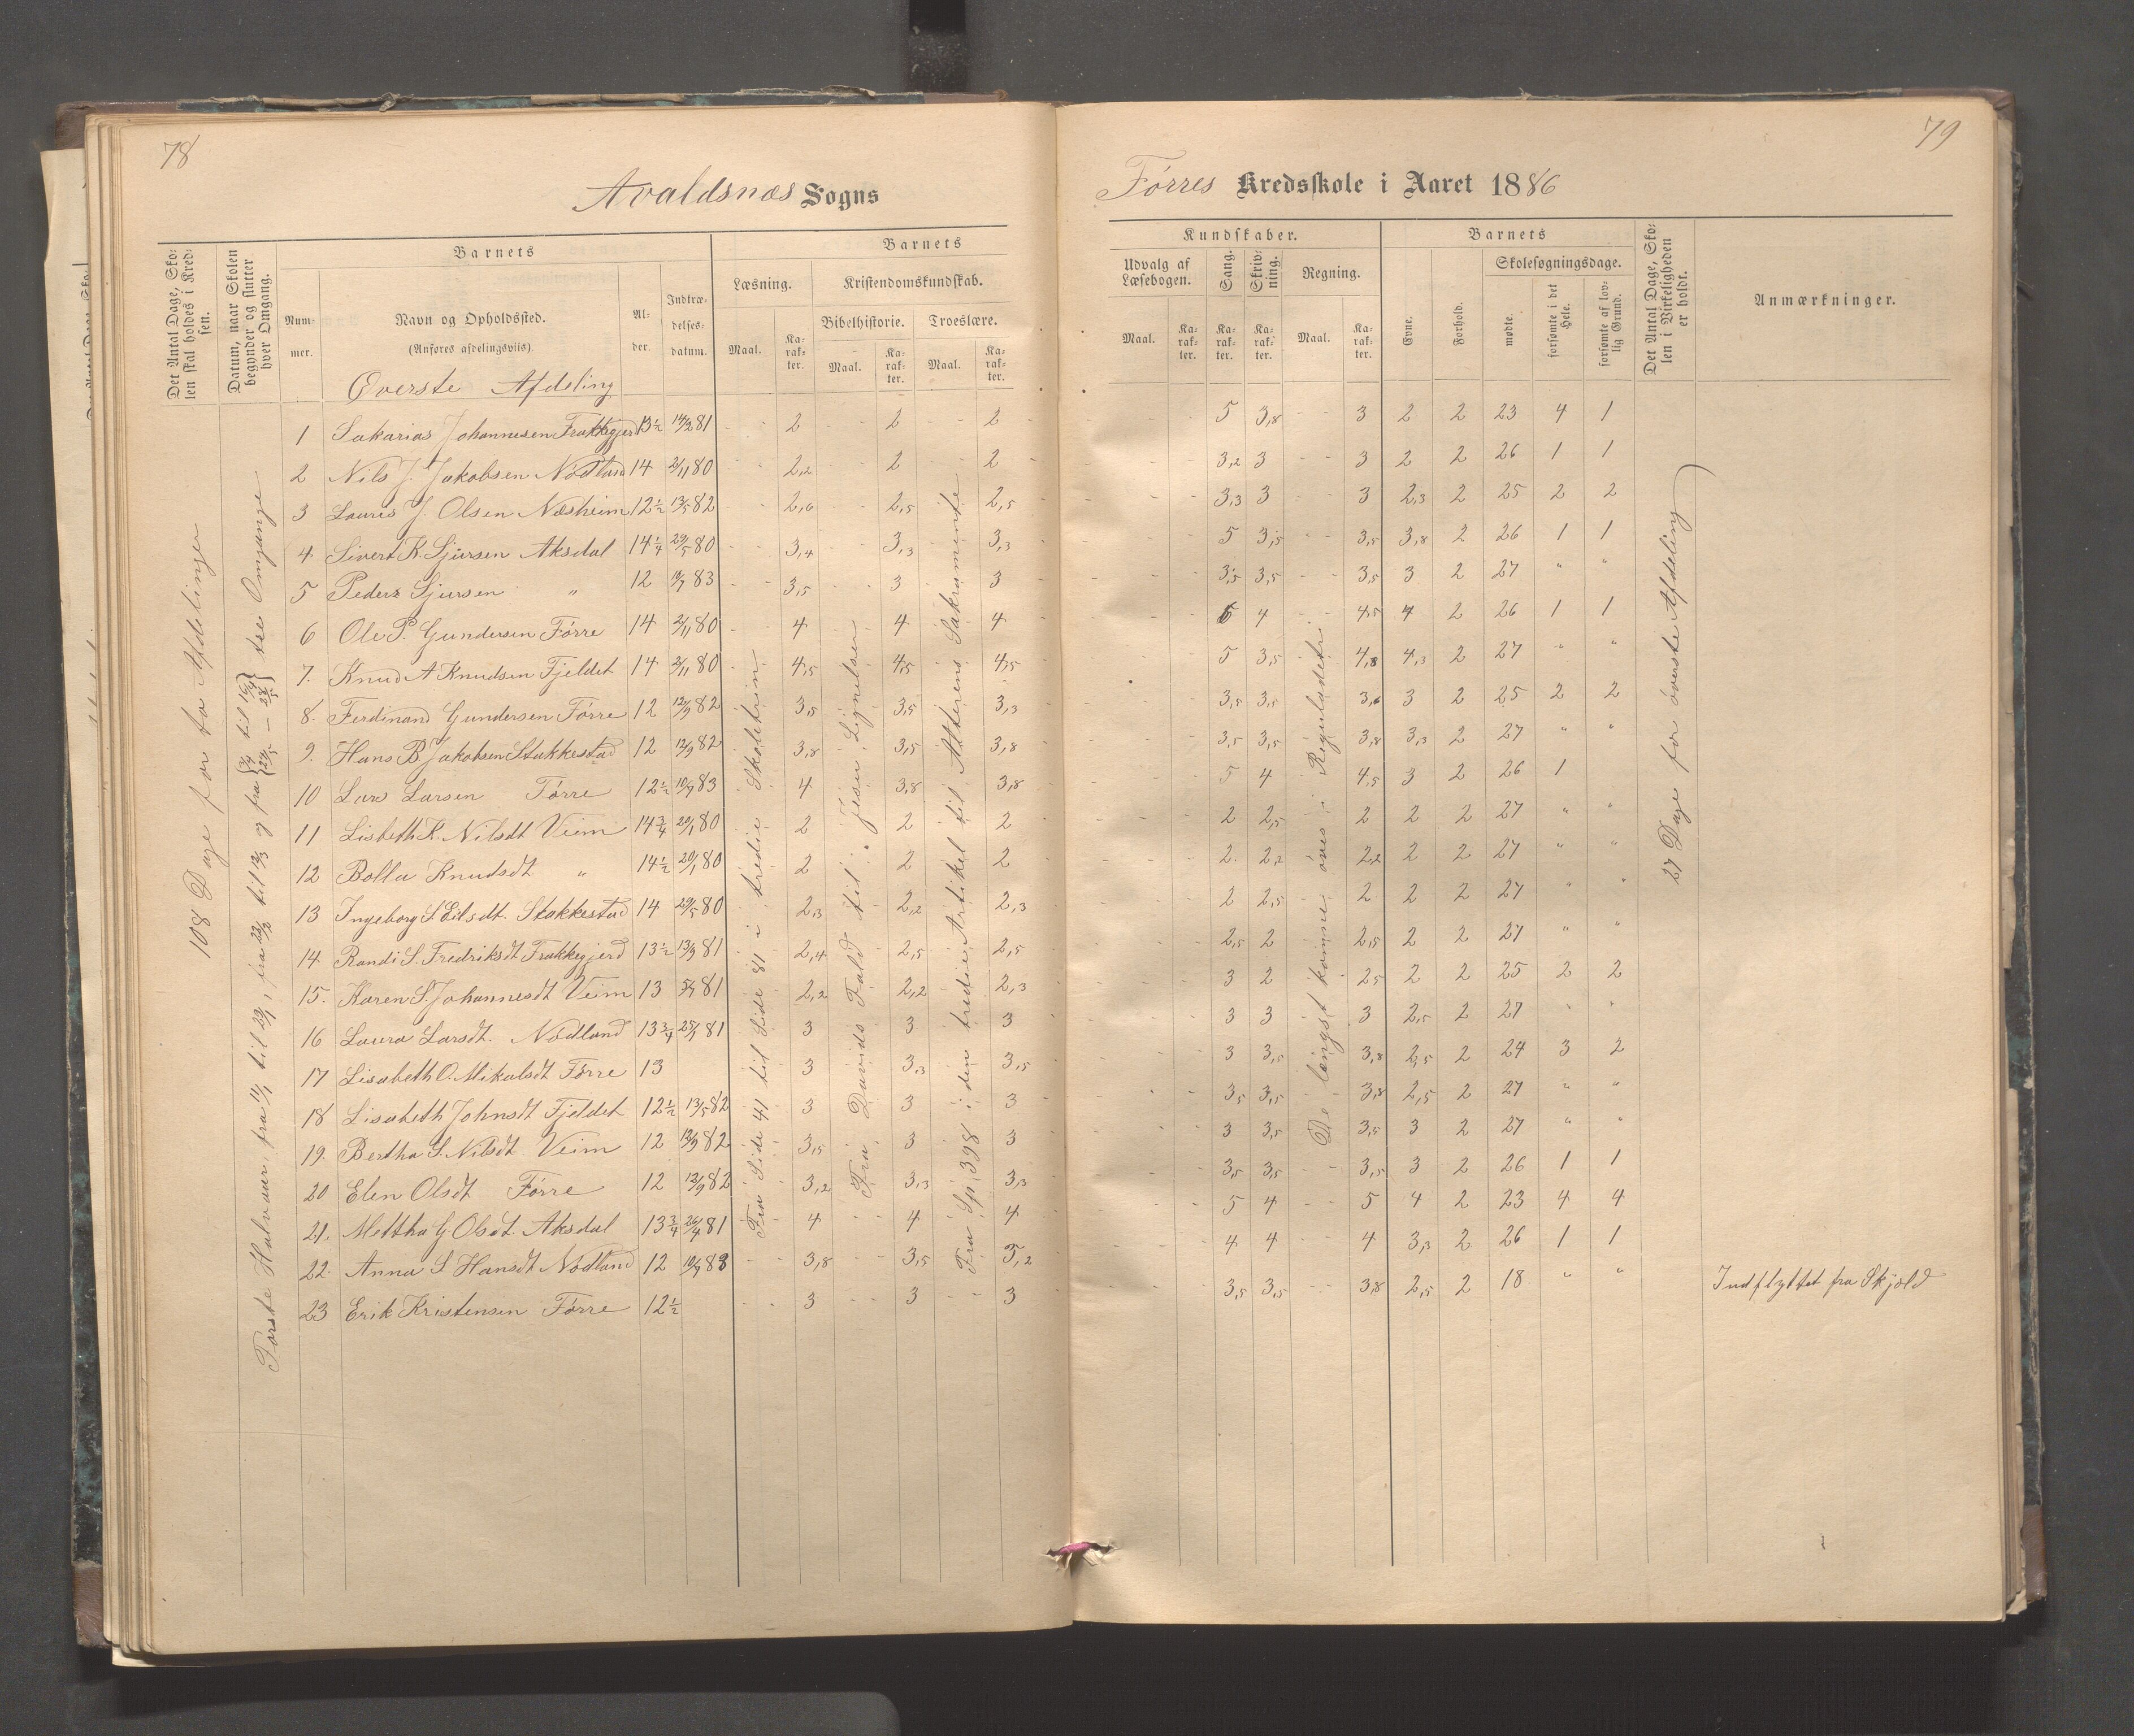 78
Avaldsnæs Sogns
Det Antal Dage, Skolen skal holdes i Kredsen.
Datum, naar Skolen begynder og slutter hver Omgang.
Barnets
Nummer.
Navn og Opholdssted.
(Anføres afdelingsviis)
Alder.
Indtrædelsesdatum.
Barnets
Læsning.
Kristendomskundskab.
Bibelhistorie.
Troeslære.
Maal.
Karakter.
Maal.
Karakter.
Maal.
Karakter.
Øverste Afdeling
108 Dage for to Afdelinger
Første Halvaar, fra 11/1 til 29/1, fra 22/2 til 13/3 og fra { 3/4 til 16/4 24/5 – 28/5 } tre Omgange
Fra Side 41 til Side 81 i tredie Skoletrin
Fra Davids Fald til Jesu Lignelser
Fra Sp. 398 i den tredie Artikel til Alterens Sakramente
1 Sakarias Johannesen Frakkegjerd 13½ 14/3 81 2 2 2
2 Nils J. Jakobsen Nodland 14 2/11 80 2,2 2 2
3 Laures J. Olsen Næsheim 12½ 13/5 82 2,6 2,5 2,5
4 Sivert K. Sjursen Aksdal 14¼ 29/5 80 3,4 3,3 3,3
5 Peder Sjursen " 12 10/7 83 3,5 3 3
6 Ole P. Gundersen Førre 14 2/11 80 4 4 4
7. Knud A Knudsen Fjeldet 14 2/11 80 4,5 4,5 4,5
8. Ferdinand Gundersen Førre 12 12/9 82 3,5 3,5 3,3
9. Hans B Jakobsen Stakkestad 12 12/9 82 3,8 3,5 3,8
10 Lars Larsen Førre 12½ 10/7 83 4 3,8 3,8
11 Lisbeth K. Nilsdt Veim 14¾ 20/1 80 2 2 2
12 Bolla Knudsdt " 14½ 20/1 80 2 2 2
13 Ingeborg S Eilsdt. Stakkestad 14 29/5 80 2,3 2,2 2,3
14. Randi S. Fredriksdt Frakkegjerd 13½ 13/9 81 2,4 2,5 2,5
15. Karen S. Johannesdt Veim 13 81 2,2 2,2 2,3
16 Laura Larsdt. Nodland 13¾ 81 3 3 3
17 Lisabeth O. Mikalsdt Førre 13 3 3,3 3,5
18 Lisabeth Johnsdt Fjeldet 12½ 13/5 82 3 3 3
19. Bertha S. Nilsdt Veim 12 12/9 82 3,5 3 3
20 Elen Olsdt Førre 12 12/9 82 3,2 3,3 3,3
21. Mettha G. Olsdt. Aksdal 13¾ 26/4 81 4 4 4
22. Anna S Hansdt Nodland 12 10/7 83 3,8 3,5 3,2
23 Erik Kristensen Førre 12½ 3 3 3
79
Førres Kredsskole i Aaret 1886
Kundskaber.
Udvalg af Læsebogen.
Sang.
Skrivning.
Regning.
Maal.
Karakter.
Karakter.
Karakter.
Maal.
Karakter.
Barnets
Evne.
Forhold.
Skolesøgningsdage.
mødte.
forsømte i det Hele.
forsømte af lovlig Grund.
Det Antal Dage, Skolen i Virkeligheden er holdt.
Anmærkninger.
De længst komne øves i Reguladetri
27 Dage for øverste Afdeling
5 3,8 3 2 2 23 4 1
3,2 3 3 2 2 26 1 1
3,3 3 3 2,3 2 25 2 2
5 3,5 3,5 3,8 2 26 1 1
3,5 3,5 3,5 3 2 27 " "
5 4 4,5 4 2 26 1 1
5 3,5 4,8 4,3 2 27 " "
3,5 3,5 3,6 3 2 25 2 2
3,5 3,5 3,8 3,3 2 27 " "
5 4 4,5 3 2 26 1
2 2,5 2 2 2 27 " "
2 2,2 2,2 2 2 27 " "
2 2,5 2 2 2 27 " "
2,5 2 2,5 2 2 27 " "
3 2 2,5 2 2 25 2 2
3 3 3 2,5 2 27 " "
3 3,5 3,8 2,5 2 24 3 2
3,5 3,5 3,8 2,5 2 27 " "
3 3,5 3,5 3 2 27 " "
3,5 3,5 3,5 3 2 26 1 1
5 4 5 4 2 23 4 4
4 4 4 3,3 2 26 1 1
3,5 3,5 3,8 2,5 2 18 " " Indflyttet fra Skjold